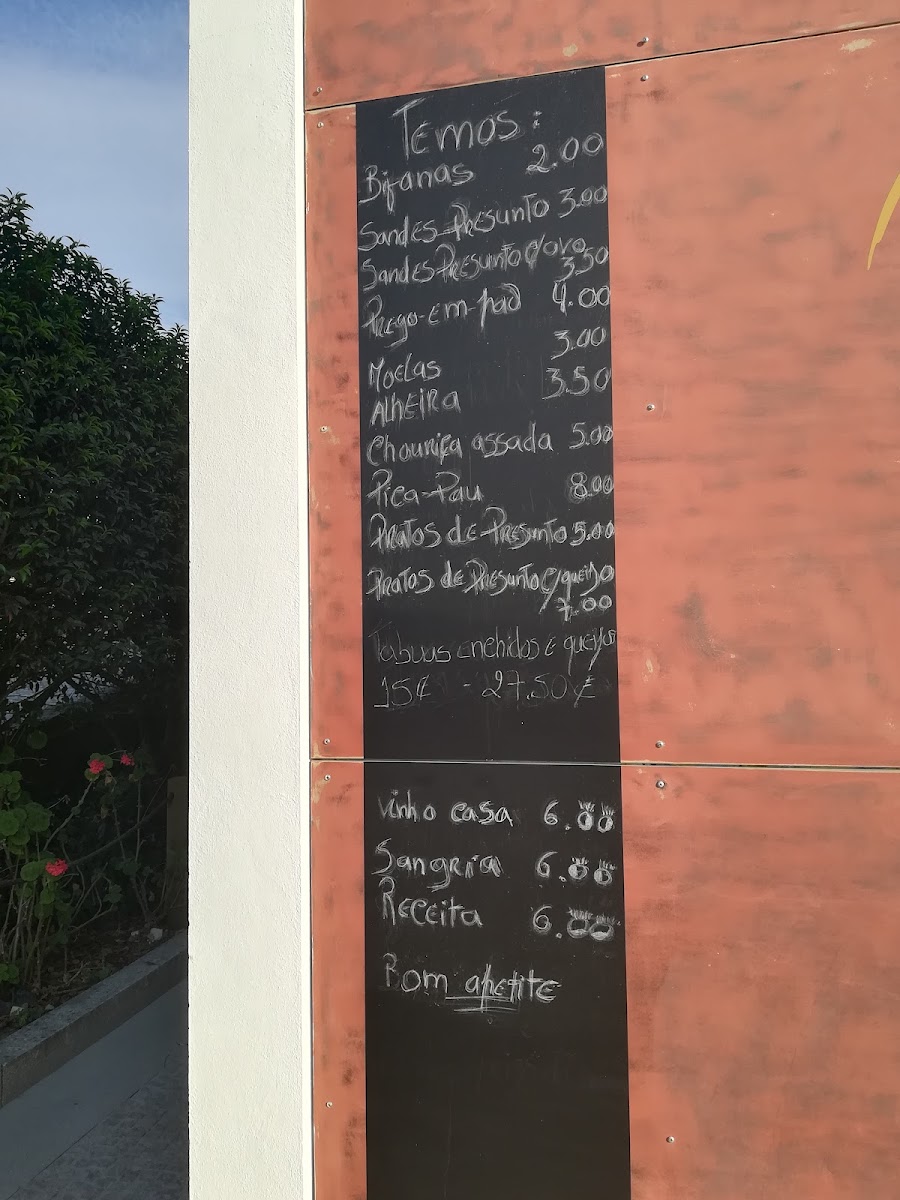 Temos:
Bifanas 2.00
Sandes Presunto 3.00
Sandes Presunto c/ovo
3.50
Prego-em-pao 4.00
Moelas 3.00
Alheira 3.50
Chouriça assada 5.00
Pica-Pau 8.00
Pratos de Presunto 5.00
Pratos de Presunto c/queijo
7.00
Tabuas enchidos e queijos
15€ - 27.50€
Vinho casa 6.00
Sangria 6.00
Receita 6.00
Bom apetite